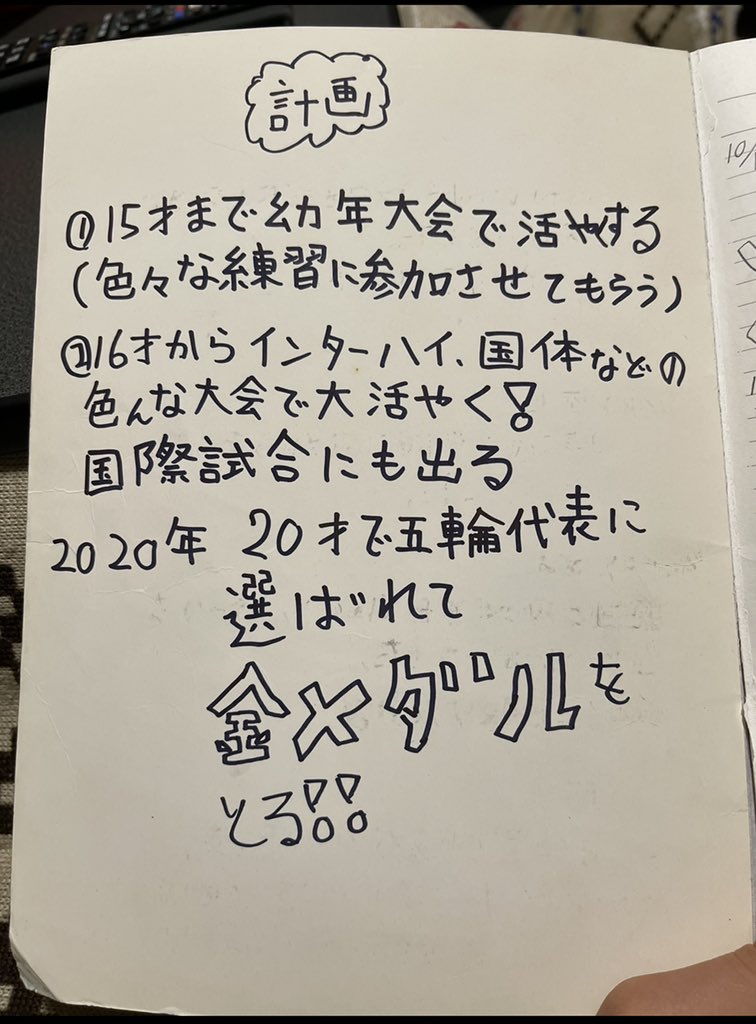 計画
①15才まで幼年大会で活やする
(色々な練習に参加させてもらう)
②16才からインターハイ、国体などの
色んな大会で大活やく!
国際試合にも出る
2020年 20才で五輪代表に
選ばれて
金メダルを
とる!!
10/